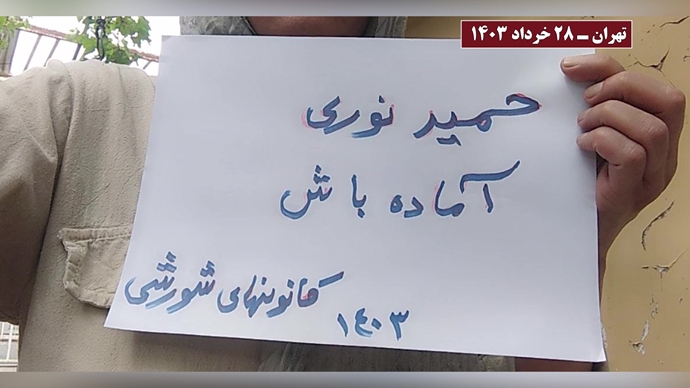 تهران ـ ۲۸ خرداد ۱۴۰۳
حمید نوری
آماده باش
کانونهای شورشی
۱۴۰۳